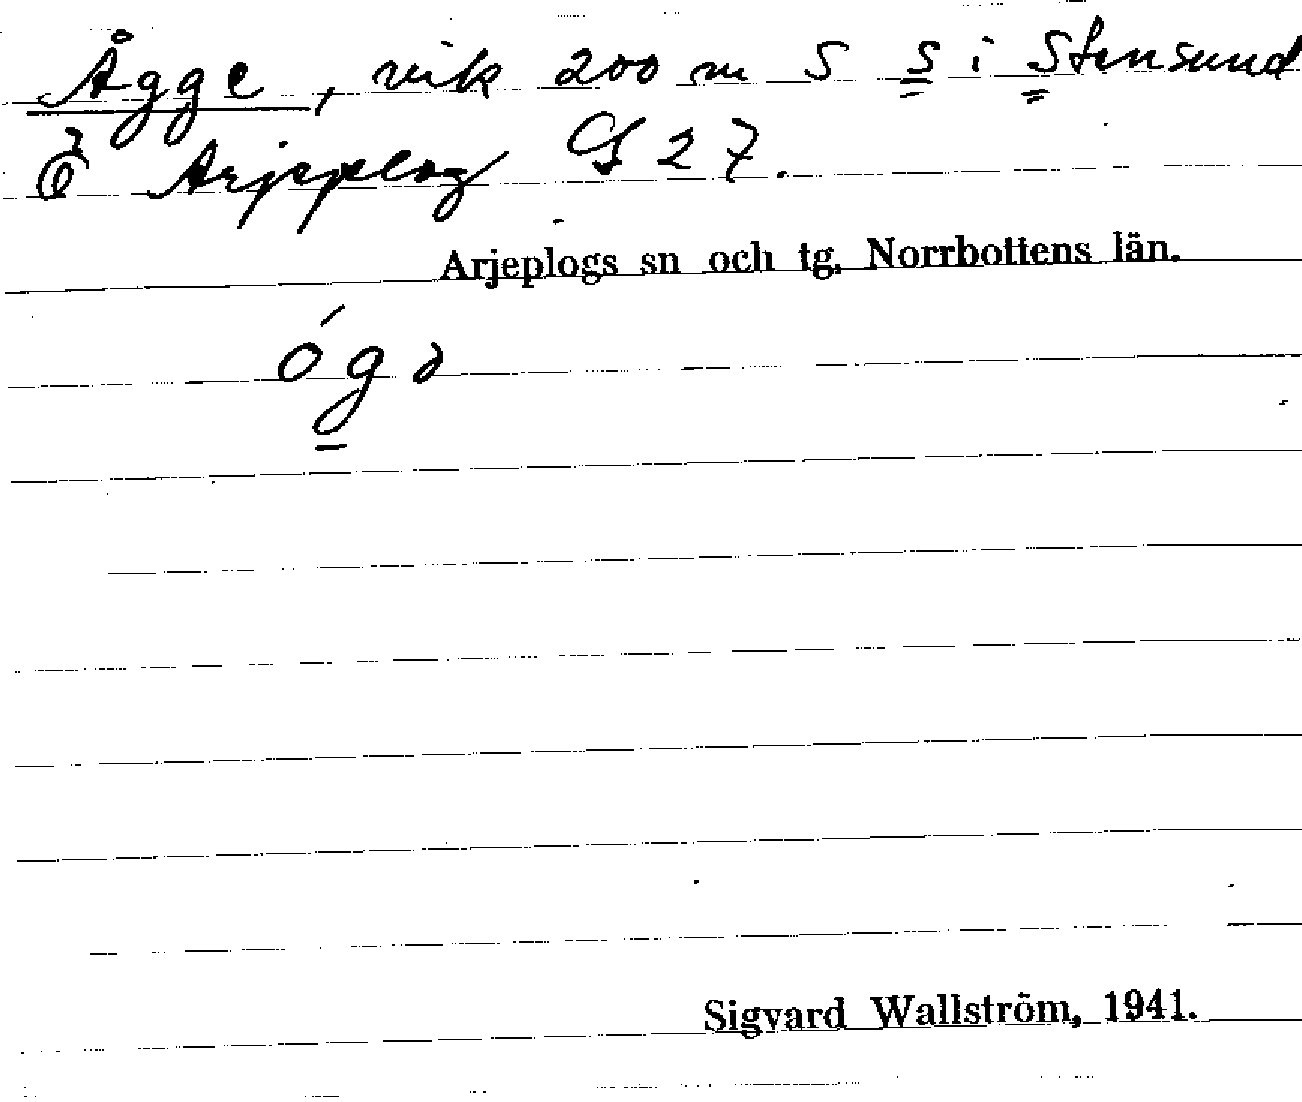 Ågge, vik 200 m S S i Stensund
Ö Arjeplog G 27.
Arjeplogs sn och tg. Norrbottens län.
ógə
Sigvard Wallström, 1941.